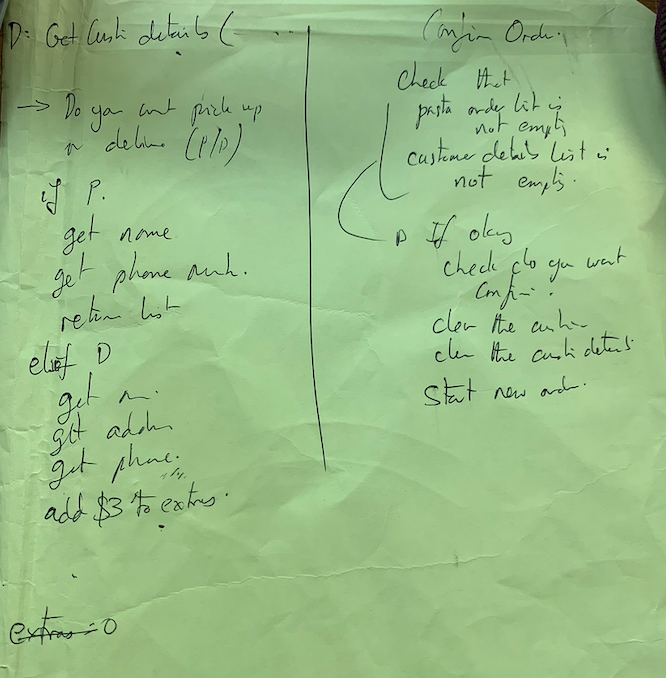 D: Get Custi details ( - - ..
→ Do you want pick up
or deliv. (P/D)
if P.
get name
get phone numb.
return list
elsif D
get n.
get addr
get phone.
add $3 to extras.
extras = 0
Confirm Order.
Check that
pasta order list is
not empty
customer details list is
not empty.
If okay
check do you want
confirm.
clear the
clear the custi details
Start new order.